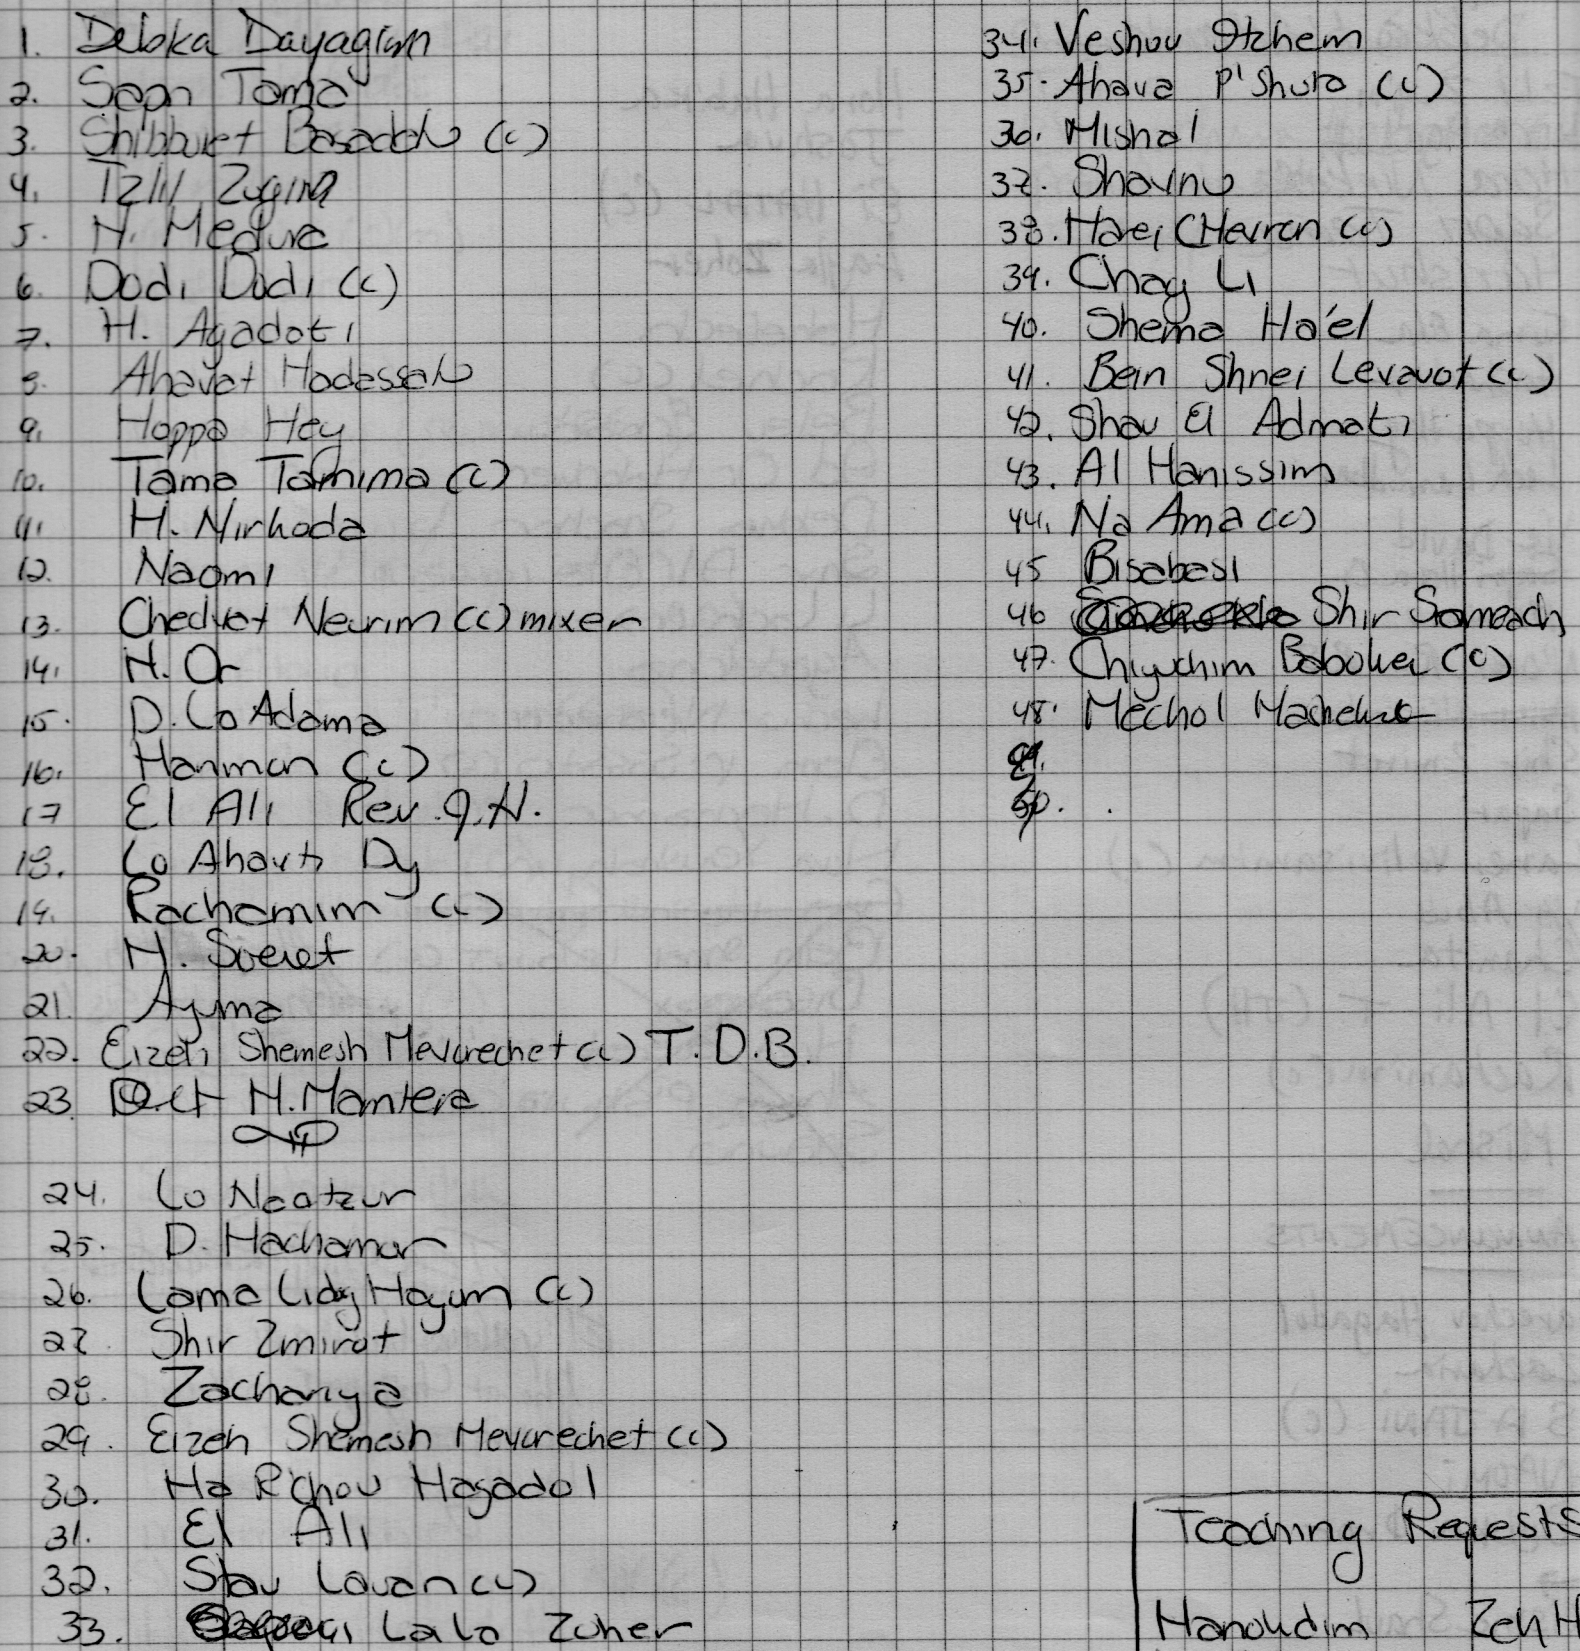 1. Debka Dayagim
2. Sapn Tama
3. Shibbulet Basadeh (c)
4. Tzlil Zugina
5. H. Medura
6. Dodi Dodi (c)
7. H. Agadati
8. Ahavat Hadassah
9. Hoppa Hey
10. Tama Tamima (c)
11. H. Nirkoda
12. Naomi
13. Chedvat Neurim (c) mixer
14. H. Or
15. D. Lo Adama
16. Harimon (c)
17 El Ali Rev. J.H.
18. Lo Ahavti Dy
19. Rachamim (c)
20. H. Soeret
21. Ayuma
22. Eizeh Shemesh Mevorechet (c) T.D.B.
23. H. Mamtera
24. Lo Naatzur
25. D. Hachamor
26. Lama Lidy Hayum (c)
27. Shir Zmirot
28. Zachariya
29. Eizeh Shemesh Mevorechet (c)
30. Ha R'chov Hagadol
31. El Ali
32. Stav Lavan (c)
33. Laila Zoher
34. Veshuv Itchem
35. Ahava P'shuta (c)
36. Mishal
37. Shavnu
38. Harei Chevron (c)
39. Chag Li
40. Shema Ha'el
41. Bein Shnei Levavot (c)
42. Shav El Admati
43. Al Hanissim
44. Na Ama (c)
45 Bisabasi
46 Shir Sameach
47. Chiyuchim Baboker (c)
48. Mechol Hacherut
49.
50.
Teaching Requests
Hanokdim Zeh H